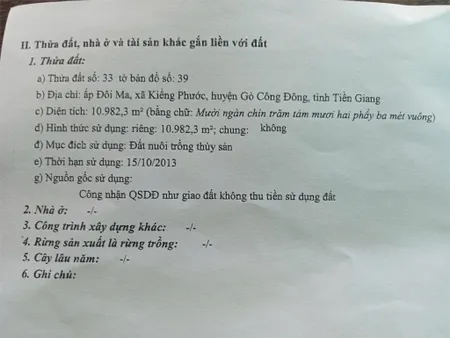 II. Thửa đất, nhà ở và tài sản khác gắn liền với đất
1. Thửa đất:
a) Thửa đất số: 33 tờ bản đồ số: 39
b) Địa chỉ: ấp Đôi Ma, xã Kiểng Phước, huyện Gò Công Đông, tỉnh Tiền Giang
c) Diện tích: 10.982,3 m² (bằng chữ: Mười ngàn chín trăm tám mươi hai phẩy ba mét vuông)
d) Hình thức sử dụng: riêng: 10.982,3 m²; chung: không
đ) Mục đích sử dụng: Đất nuôi trồng thủy sản
e) Thời hạn sử dụng: 15/10/2013
g) Nguồn gốc sử dụng:
Công nhận QSDĐ như giao đất không thu tiền sử dụng đất
2. Nhà ở: -/-
3. Công trình xây dựng khác: -/-
4. Rừng sản xuất là rừng trồng: -/-
5. Cây lâu năm: -/-
6. Ghi chú: